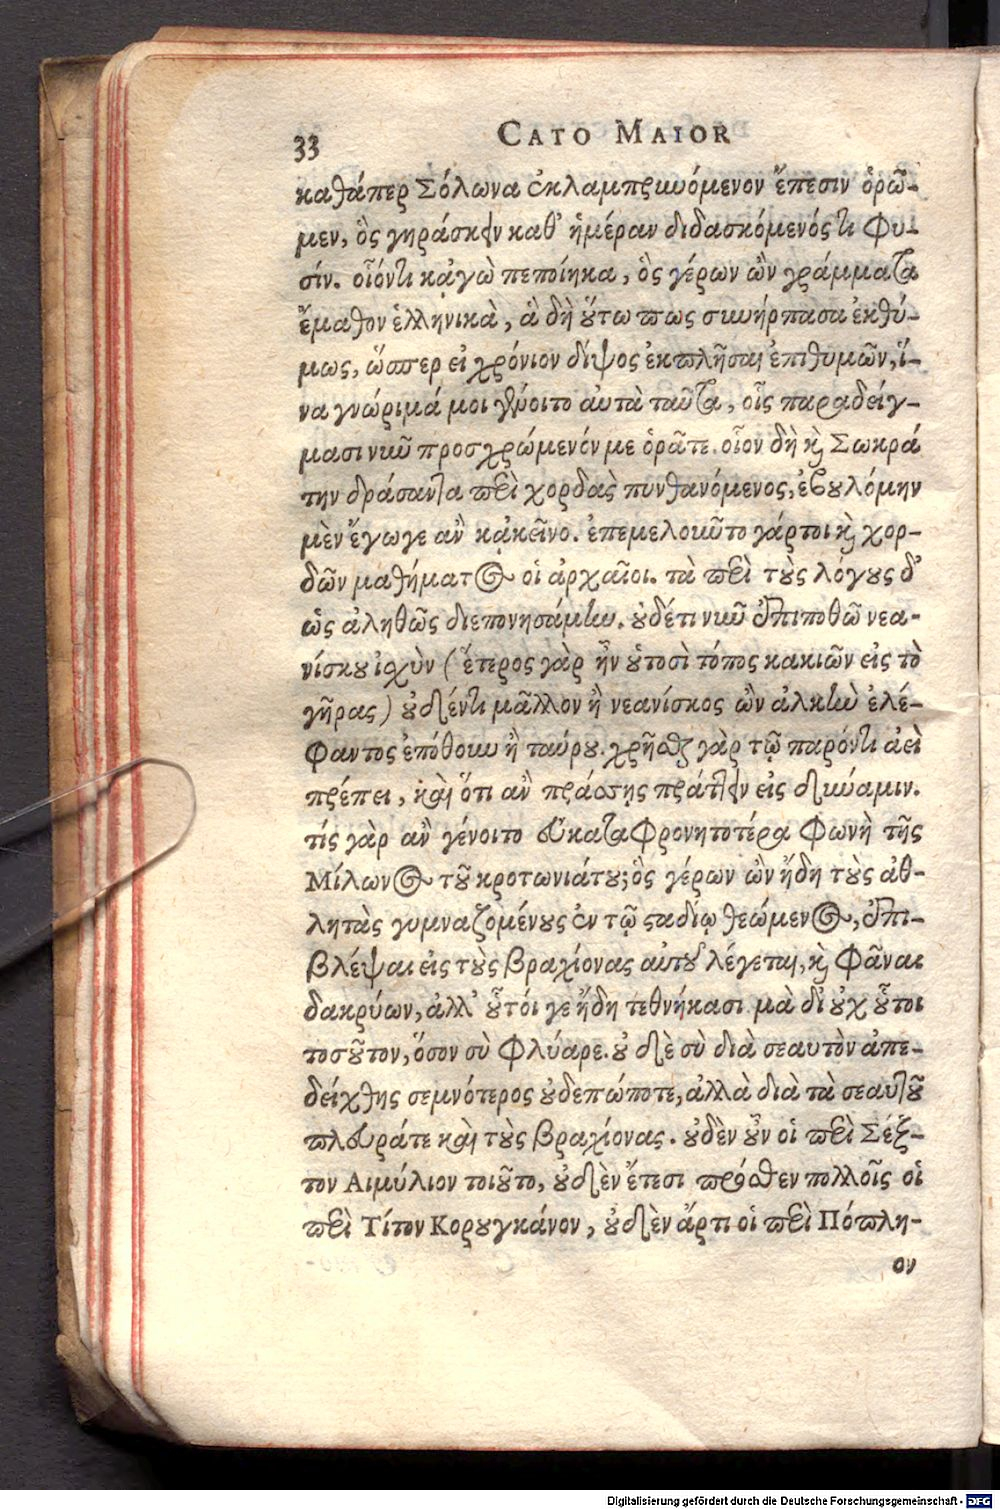 33 CATO MAIOR
καθάπερ Σόλωνα ἐκλαμπρυνόμενον ἔπεσιν ὁρῶ-
μεν, ὃς γηράσκειν καθ' ἡμέραν διδασκόμενός τι φη-
σίν. οἷόν τι κᾀγὼ πεποίηκα, ὃς γέρων ὢν γράμματα
ἔμαθον ἑλληνικὰ, ἃ δὴ οὕτω πως συνήρπασα ἐκθύ-
μως, ὥσπερ εἰ χρόνιον δίψος ἐκπλῆσαι ἐπιθυμῶν, ἵ-
να γνώριμά μοι γένοιτο αὐτὰ ταῦτα, οἷς παραδείγ-
μασι νῦν προσχρώμενόν με ὁρᾶτε. οἷον δὴ καὶ Σωκρά
την δράσαντα περὶ χορδὰς πυνθανόμενος, ἐβουλόμην
μὲν ἔγωγε ἂν κᾀκεῖνο. ἐπεμελοῦντο γάρτοι καὶ χορ-
δῶν μαθήματος οἱ ἀρχαῖοι. τὰ περὶ τοὺς λόγους δ'
ὡς ἀληθῶς διεπονησάμην. οὐδέ τι νῦν ἐπιποθῶ νεα-
νίσκου ἰχὺν (ἕτερος γὰρ ἦν οὑτοσὶ τόπος κακιῶν εἰς τὸ
γῆρας) οὐδέν τι μᾶλλον ἢ νεανίσκος ὢν ἀλκὴν ἐλέ-
φαντος ἐπόθουν ἢ ταύρου. χρῆσθαι γὰρ τῷ παρόντι ἀεὶ
πρέπει, καὶ ὅτι ἂν πράσσῃς πράττειν εἰς δύναμιν.
τίς γὰρ ἂν γένοιτο εὐκαταφρονητοτέρα φωνὴ τῆς
Μίλωνος τοῦ κροτωνιάτου; ὃς γέρων ὢν ἤδη τοὺς ἀθ-
λητὰς γυμναζομένους ἐν τῷ σταδίῳ θεώμενος, ἐπι-
βλέψαι εἰς τοὺς βραχίονας αὐτοῦ λέγεται, καὶ φᾶναι
δακρύων, ἀλλ' οὗτοί γε ἤδη τεθνήκασι. μὰ δί οὐχ οὗτοι
τοσοῦτον, ὅσον σὺ φλύαρε. οὐ δὲ σὺ διὰ σεαυτὸν ἀπε-
δείχθης σεμνότερος οὐδεπώποτε, ἀλλὰ διὰ τὰ σεαυτοῦ
πλευράτε καὶ τοὺς βραχίονας. οὐδὲν οὖν οἱ περὶ Σέξ-
τον Αιμύλιον τοιοῦτο, οὐδὲν ἔτεσι πρόσθεν πολλοῖς οἱ
περὶ Τίτον Κορουγκάνον, οὐδὲν ἄρτι οἱ περὶ Πόπλη-
ον
Digitalisierung gefördert durch die Deutsche Forschungsgemeinschaft - DFG